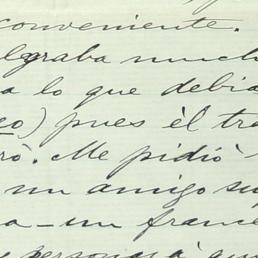 conveniente.
lgraba mucho
a lo que debia
eo) pues èl tra
rò. Me pidiò
un amigo su
a - un france
y persona à qu